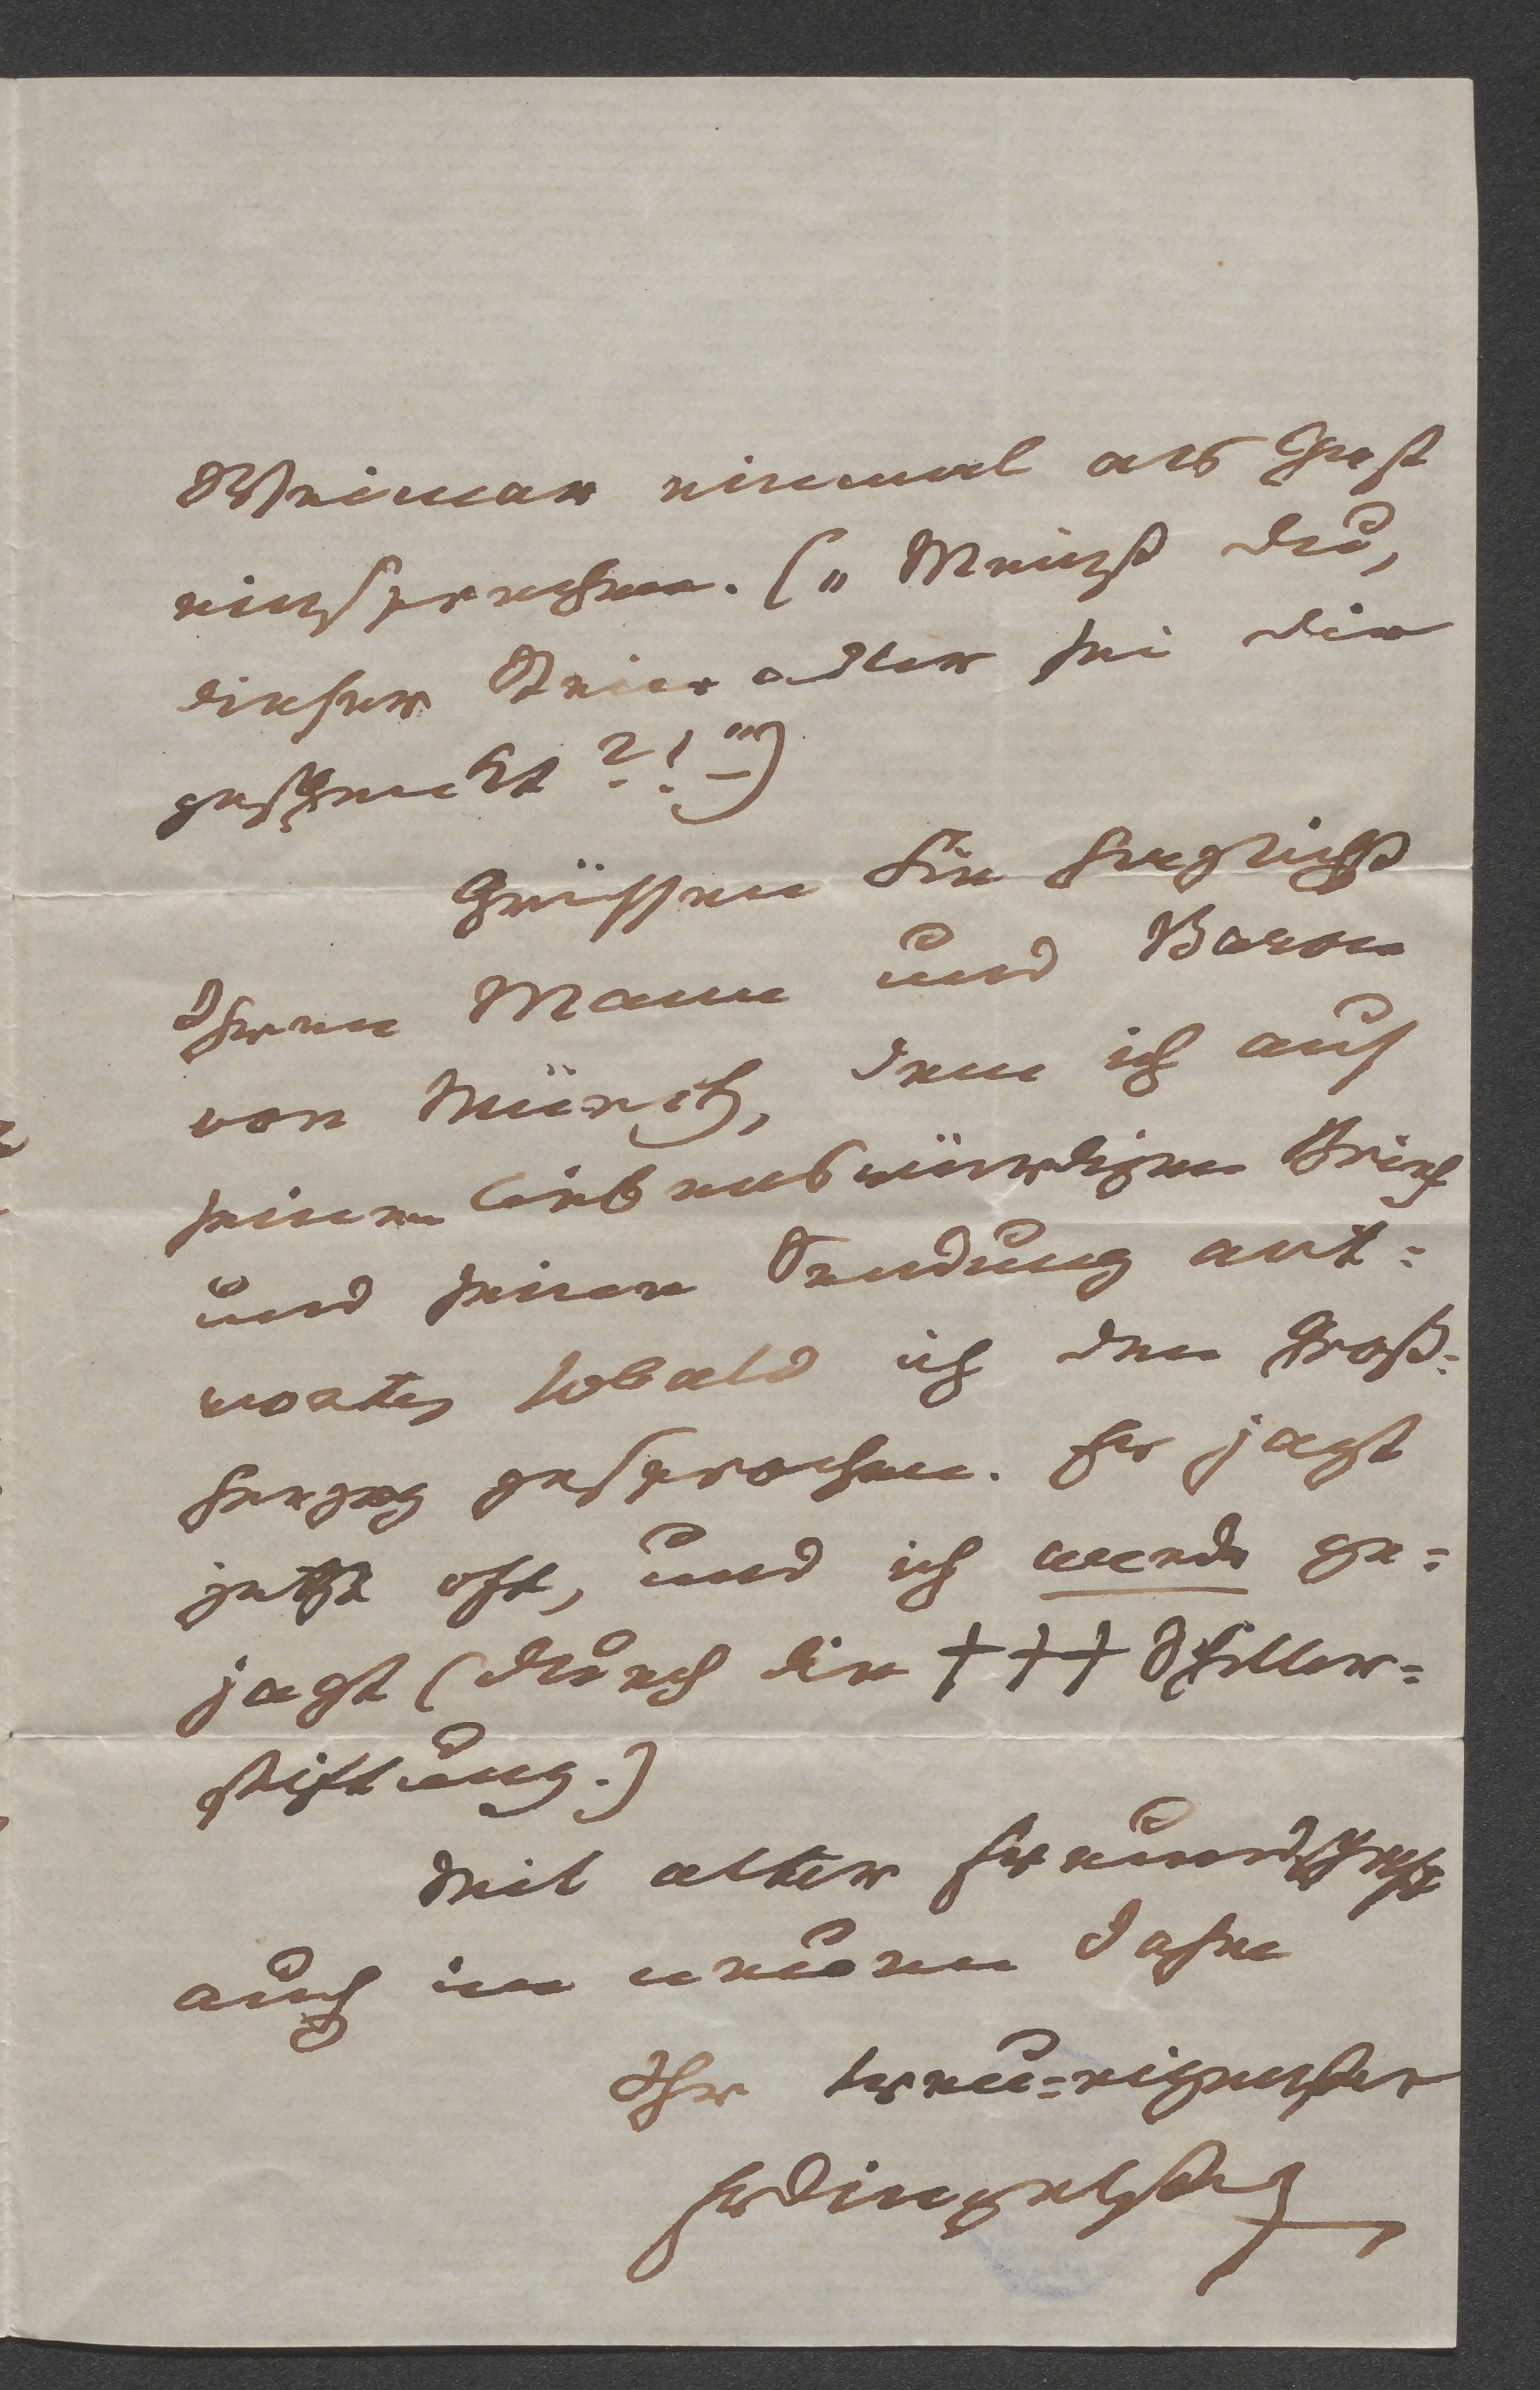 Weimar einmal als Gast
einsprechen. („Meinst du,
dieser Steinadler sei dir
geschenkt?!“)
Grüssen Sie herzlichst
Ihren Mann und Baron
von Münch, dem ich auf
seinen liebenswürdigen Brief
und seine Sendung ant=
worte, sobald ich den Groß=
herzog gesprochen. Er jagt
jetzt oft, und ich werde ge=
jagt (durch die +++ Schiller=
stiftung.)
Mit alter Freundschaft
auch im neuen Jahre
Ihr treu=eigenster
FrDingelstedt